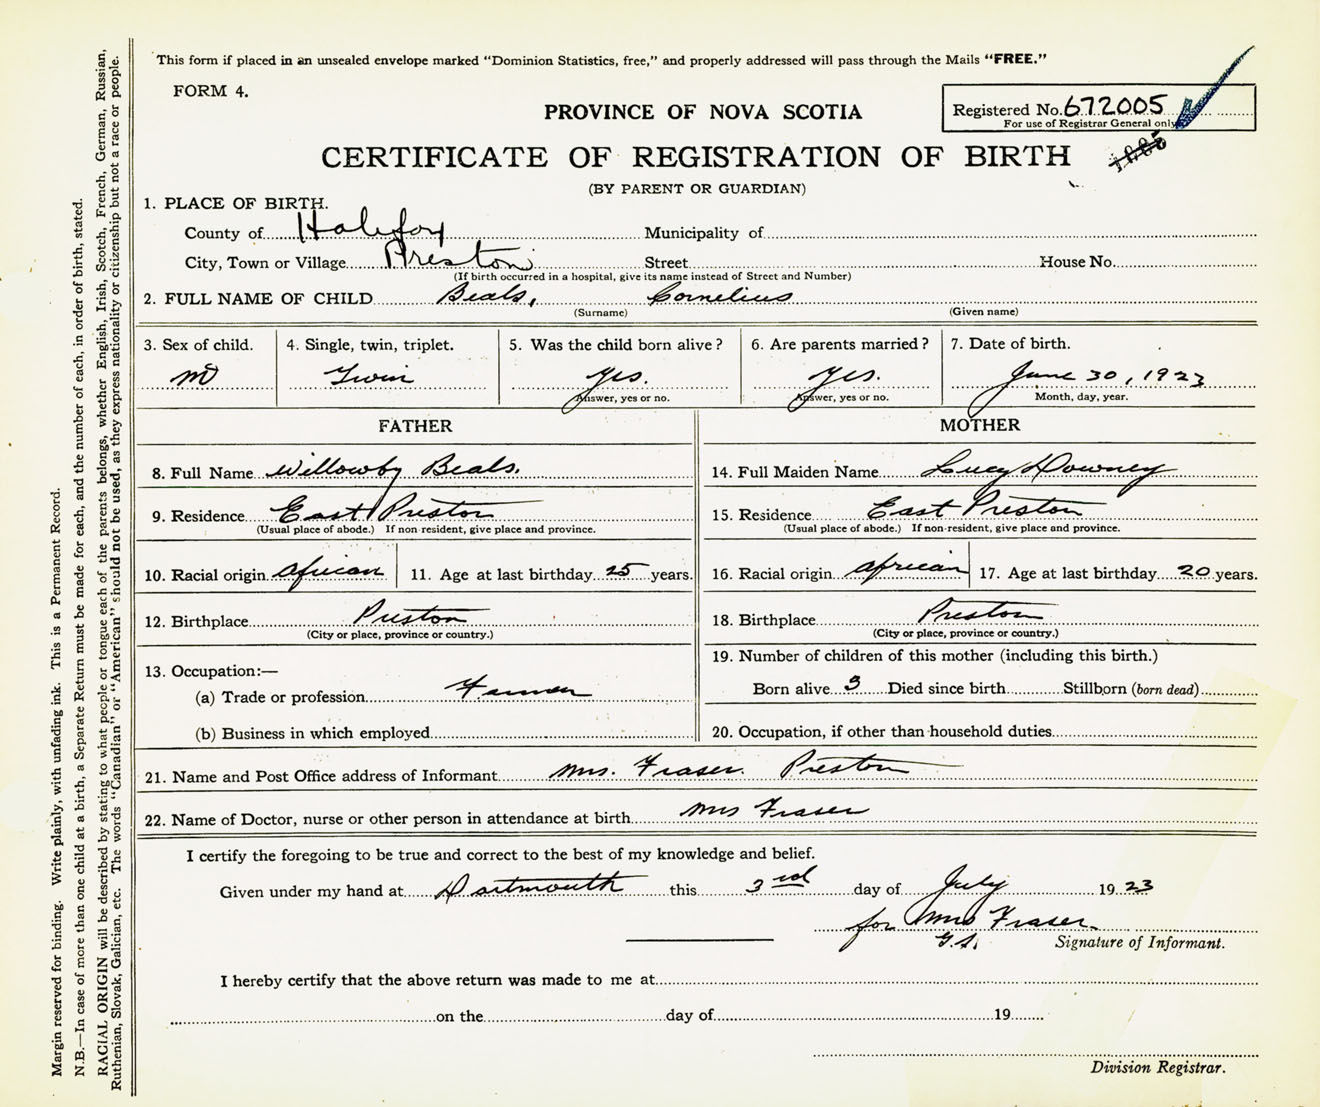 This form if placed in an unsealed envelope marked "Dominion Statistics, free," and properly addressed will pass through the Mails "FREE."
FORM 4.
PROVINCE OF NOVA SCOTIA
Registered No. 672005
For use of Registrar General only
CERTIFICATE OF REGISTRATION OF BIRTH
(BY PARENT OR GUARDIAN)
1. PLACE OF BIRTH.
County of Halifax Municipality of
City, Town or Village Preston Street House No.
(If birth occurred in a hospital, give its name instead of Street and Number)
2. FULL NAME OF CHILD Beals, Cornelius
(Surname) (Given name)
3. Sex of child. 4. Single, twin, triplet. 5. Was the child born alive? 6. Are parents married? 7. Date of birth.
M Twin Yes. Yes. June 30, 1923
Answer, yes or no. Answer, yes or no. Month, day, year.
FATHER MOTHER
8. Full Name Willowby Beals. 14. Full Maiden Name Lucy Downey
9. Residence East Preston 15. Residence East Preston
(Usual place of abode.) If non-resident, give place and province. (Usual place of abode.) If non-resident, give place and province.
10. Racial origin African 11. Age at last birthday 25 years. 16. Racial origin African 17. Age at last birthday 20 years.
12. Birthplace Preston 18. Birthplace Preston
(City or place, province or country.) (City or place, province or country.)
13. Occupation:— 19. Number of children of this mother (including this birth.)
(a) Trade or profession Farmer Born alive 3 Died since birth Stillborn (born dead)
(b) Business in which employed 20. Occupation, if other than household duties
21. Name and Post Office address of Informant Mrs. Fraser. Preston
22. Name of Doctor, nurse or other person in attendance at birth Mrs Fraser
I certify the foregoing to be true and correct to the best of my knowledge and belief.
Given under my hand at Dartmouth this 3rd day of July 1923
for Mrs Fraser
G.S. Signature of Informant.
I hereby certify that the above return was made to me at
on the day of 19
Division Registrar.
Margin reserved for binding. Write plainly, with unfading ink. This is a Permanent Record.
N.B.—In case of more than one child at a birth, a Separate Return must be made for each, and the number of each, in order of birth, stated.
RACIAL ORIGIN will be described by stating to what people or tongue each of the parents belongs, whether English, Irish, Scotch, French, German, Russian,
Ruthenian, Slovak, Galician, etc. The words "Canadian" or "American" should not be used, as they express nationality or citizenship but not a race or people.